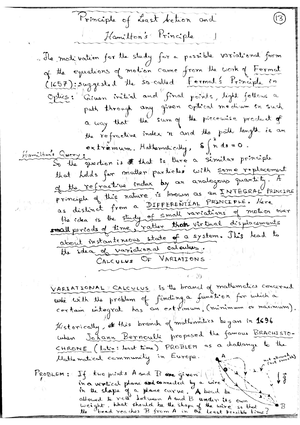 Principle of Least Action and
Hamilton's Principle
13
The motivation for the study for a possible variational form
of the equations of motion came from the work of Fermat
(1657): suggested the so-called Fermat's Principle in
Optics: Given initial and final points, light follows a
path through any given optical medium in such
a way that the sum of the piecewise product of
the refractive index n and the path length is an
extremum. Mathematically, δ∫n ds = 0.
Hamilton's Query:
So the question is that is there a similar principle
that holds for matter particles with same replacement
of the refractive index by an analogous quantity. A
principle of this nature is known as an INTEGRAL PRINCIPLE
as distinct from a DIFFERENTIAL PRINCIPLE. Here
the idea is the study of small variations of motion over
small periods of time, rather than virtual displacements
about instantaneous state of a system. This lead to
the idea of variational calculus.
CALCULUS OF VARIATIONS
VARIATIONAL CALCULUS is the branch of mathematics concerned
with the problem of finding a function for which a
certain integral has an extremum, (minimum or maximum).
Historically, this branch of mathematics began in 1696
when Johann Bernoulli proposed the famous BRACHISTO-
CHRONE PROBLEM as a challenge to the
Mathematical community in Europe.
PROBLEM: If two points A and B are given
in a vertical plane and connected by a wire
in the shape of a plane curve. A bead is
allowed to between A and B under its own
weight, what should be the shape of the wire so that
the bead reaches B from A in the least possible time?
A
B